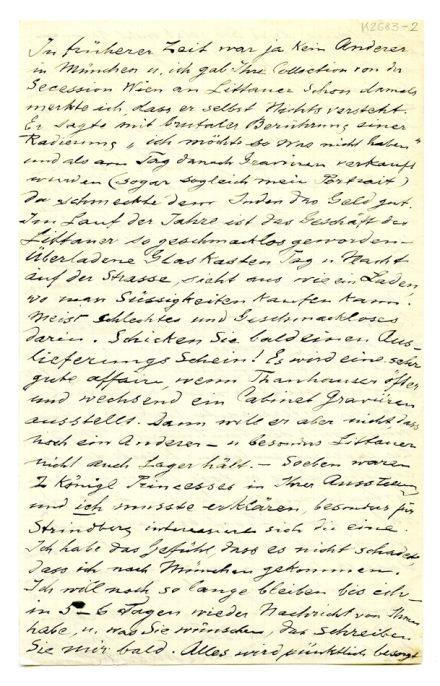 K2683-2
In früherer Zeit war ja kein Anderer
in München u. ich gab Ihre Collection von der
Secession Wien an Littauer. Schon damals
merkte ich, dass er selbst Nichts versteht.
Er sagte mit brutaler Berührung einer
Radierung „ich möchte so was nicht haben“
und als am Tag danach Gravüren verkauft
wurden (sogar sogleich mein Portrait)
da schmeckte dem Juden das Geld gut.
Im Lauf der Jahre ist das Geschäft des
Littauer so geschmacklos geworden –
Überladene Glaskasten Tag u. Nacht
auf der Strasse, sieht aus wie ein Laden
wo man Süssigkeiten kaufen kann.
Meist schlechtes und Geschmackloses
darin. Schicken Sie bald einen Aus-
lieferungs Schein! Es wird eine sehr
gute affair, wenn Thannhauser öfter
und wechsend ein Cabinet Gravüren
ausstellt. Dann will er aber nicht, dass
noch ein Anderer – u. besonders Littauer
nicht auch Lager hält. – Soeben waren
2 Königl Princesses in Ihrer Ausstellung
und ich musste erklären, besonders für
Strindberg interessiert sich die eine.
Ich habe das Gefühl, dass es nicht schadete
dass ich nach München gekommen.
Ich will noch so lange bleiben bis ich
in 5–6 Tagen wieder Nachricht von Ihnen
habe, u. was Sie wünschen, das schreiben
Sie mir bald. Alles wird pünktlich besorgt